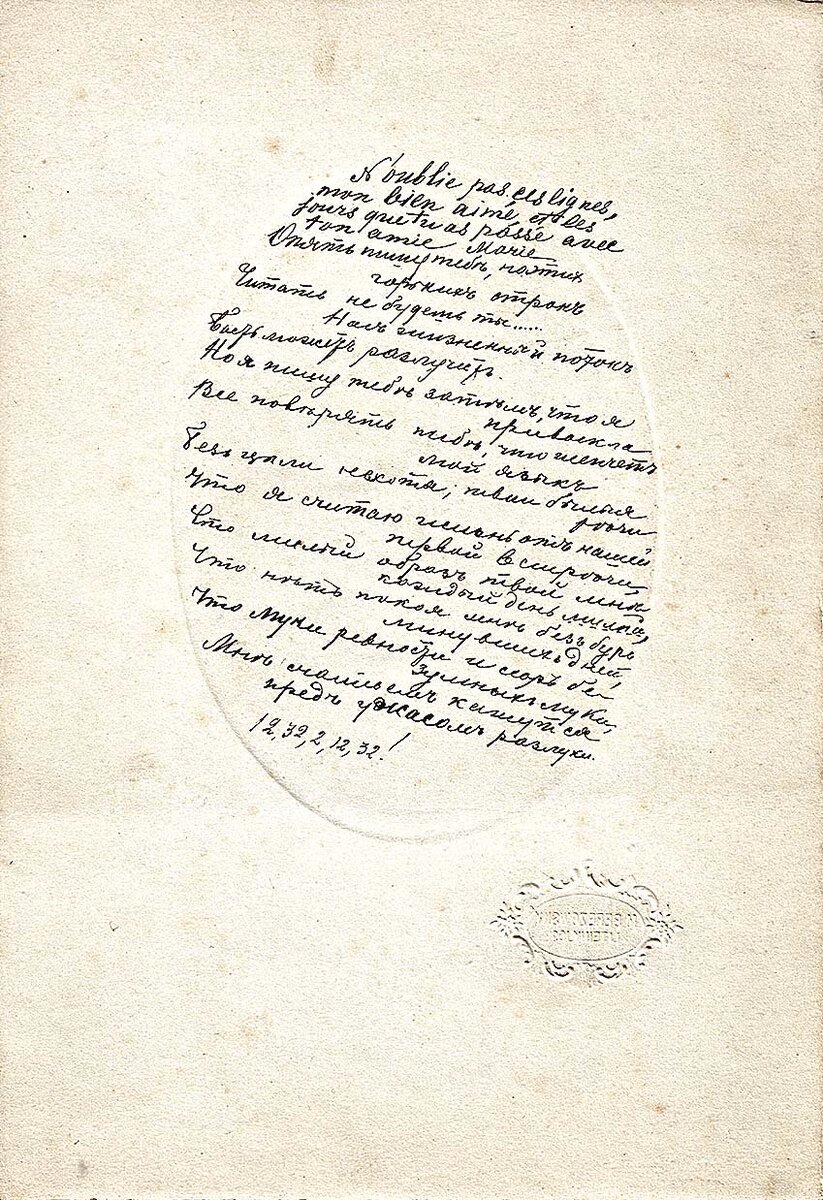 N'oublie pas ces lignes,
mon bien aimé, et les
jours que tu as passé avec
ton amie Marie
Опять пишу тебѣ, но этих
горькихъ строкъ
Читать не будешь ты......
Насъ жизненный потокъ
Быть можетъ разлучитъ.
Но я пишу тебѣ затѣмъ, что я
привыкла
Все повѣрять тебѣ, что шепчетъ
мой языкъ
Безъ цѣли нехотя, твои былыя
рѣчи
Что я считаю жизнь отъ нашей
первой встрѣчи,
Что милый образъ твой мнѣ
каждый день милѣй,
Что нѣтъ покоя мнѣ безъ бурь
минувшихъ дней,
Что муки ревности и споръ бе
зумныхъ муки,
Мнѣ счастьемъ кажутся
предъ ужасомъ разлуки.
12,32,2,12,32!